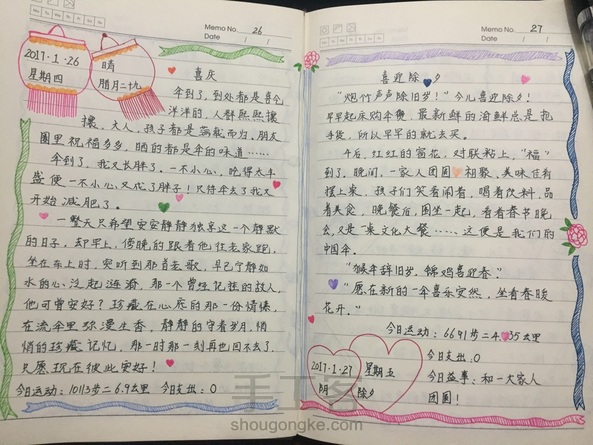 Memo No. 26
Date / /
2017·1·26
星期四
晴
腊月二十九
喜庆
年到了,到处都是喜气
洋洋的,人群熙熙攘
攘,大人,孩子都是满载而归,朋友
圈里祝福多多,晒的都是年的味道……
年到了,我又长胖了。一不小心,吃得太丰
盛便一不小心又成了胖子!只待年去了我又
开始减肥了。
一整天只希望安安静静独享这一个静默
的日子,却早上,傍晚的跟着他往老家跑,
坐在车上时,突听到那首老歌,早已宁静如
水的心泛起涟漪,那一个曾经记挂的故人,
他可曾安好?珍藏在心底的那一份情愫,
在流年里弥漫生香,静静的守着岁月,悄
悄的珍藏记忆,那一时那一刻再也回不去了,
只愿现在彼此安好!
今日运动:10113步二6.9公里 今日支出:0
Memo No. 27
Date / /
喜迎除夕
“炮竹声声除旧岁!”今儿喜迎除夕!
早早起床购年货,最新鲜的海鲜总是抢
手货,所以早早的就去买。
午后,红红的窗花,对联粘上,“福”
到了,晚间,一家人团圆相聚、美味佳肴
摆上来,孩子们笑着闹着,喝着饮料,品
着美食,晚餐后,围坐一起,看看春节晚
会,又是一桌文化大餐……这便是我们的
中国年。
“猴年辞旧岁,锦鸡喜迎春。”
“愿在新的一年喜乐安然,坐看春暖
花开。”
今日运动:6691步二4.35公里
今日支出:0
今日益事:和一大家人
团圆!
2017·1·27
阴
星期五
除夕
手工客
shougongke.com